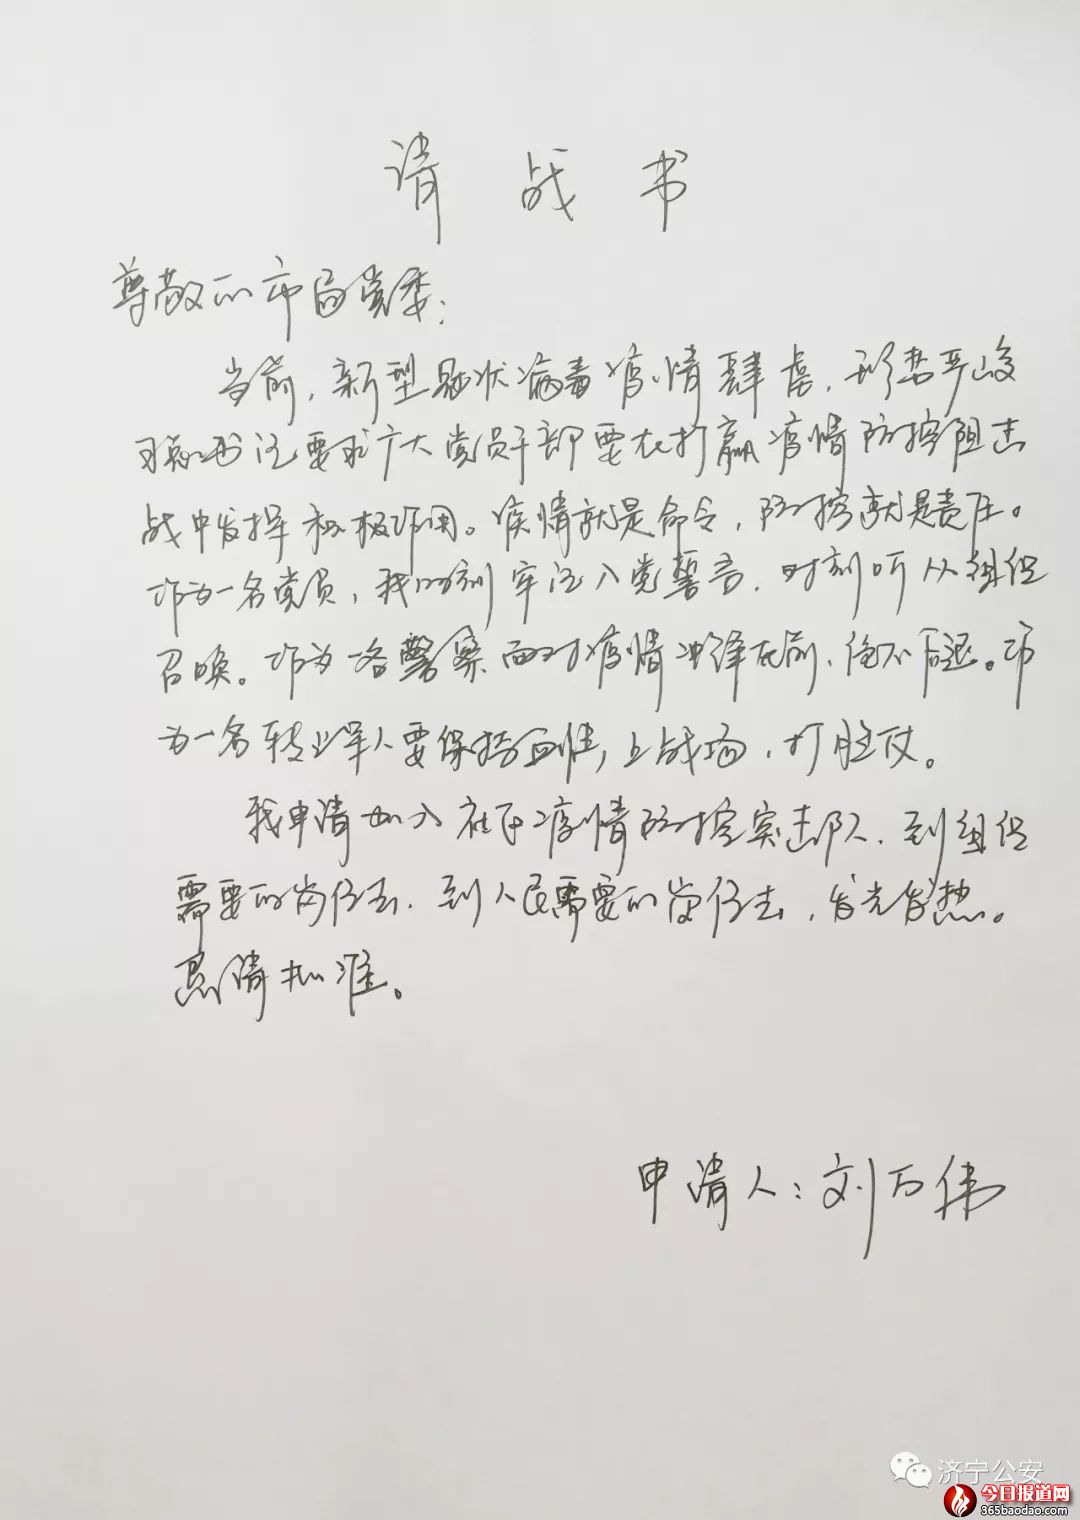 请战书
尊敬的市局党委：
当前，新型冠状病毒疫情肆虐，形势严峻
习总书记要求广大党员干部要在打赢疫情防控阻击
战中发挥积极作用。疫情就是命令，防控就是责任。
作为一名党员，我时刻牢记入党誓言，时刻听从组织
召唤。作为一名警察面对疫情冲锋在前、绝不后退。作
为一名转业军人要保持血性，上战场，打胜仗。
我申请加入在下疫情防控突击队，到组织
需要的岗位去，到人民需要的岗位去，发光发热。
恳请批准。
申请人：刘万伟
济宁公安
今日报道网
365baodao.com